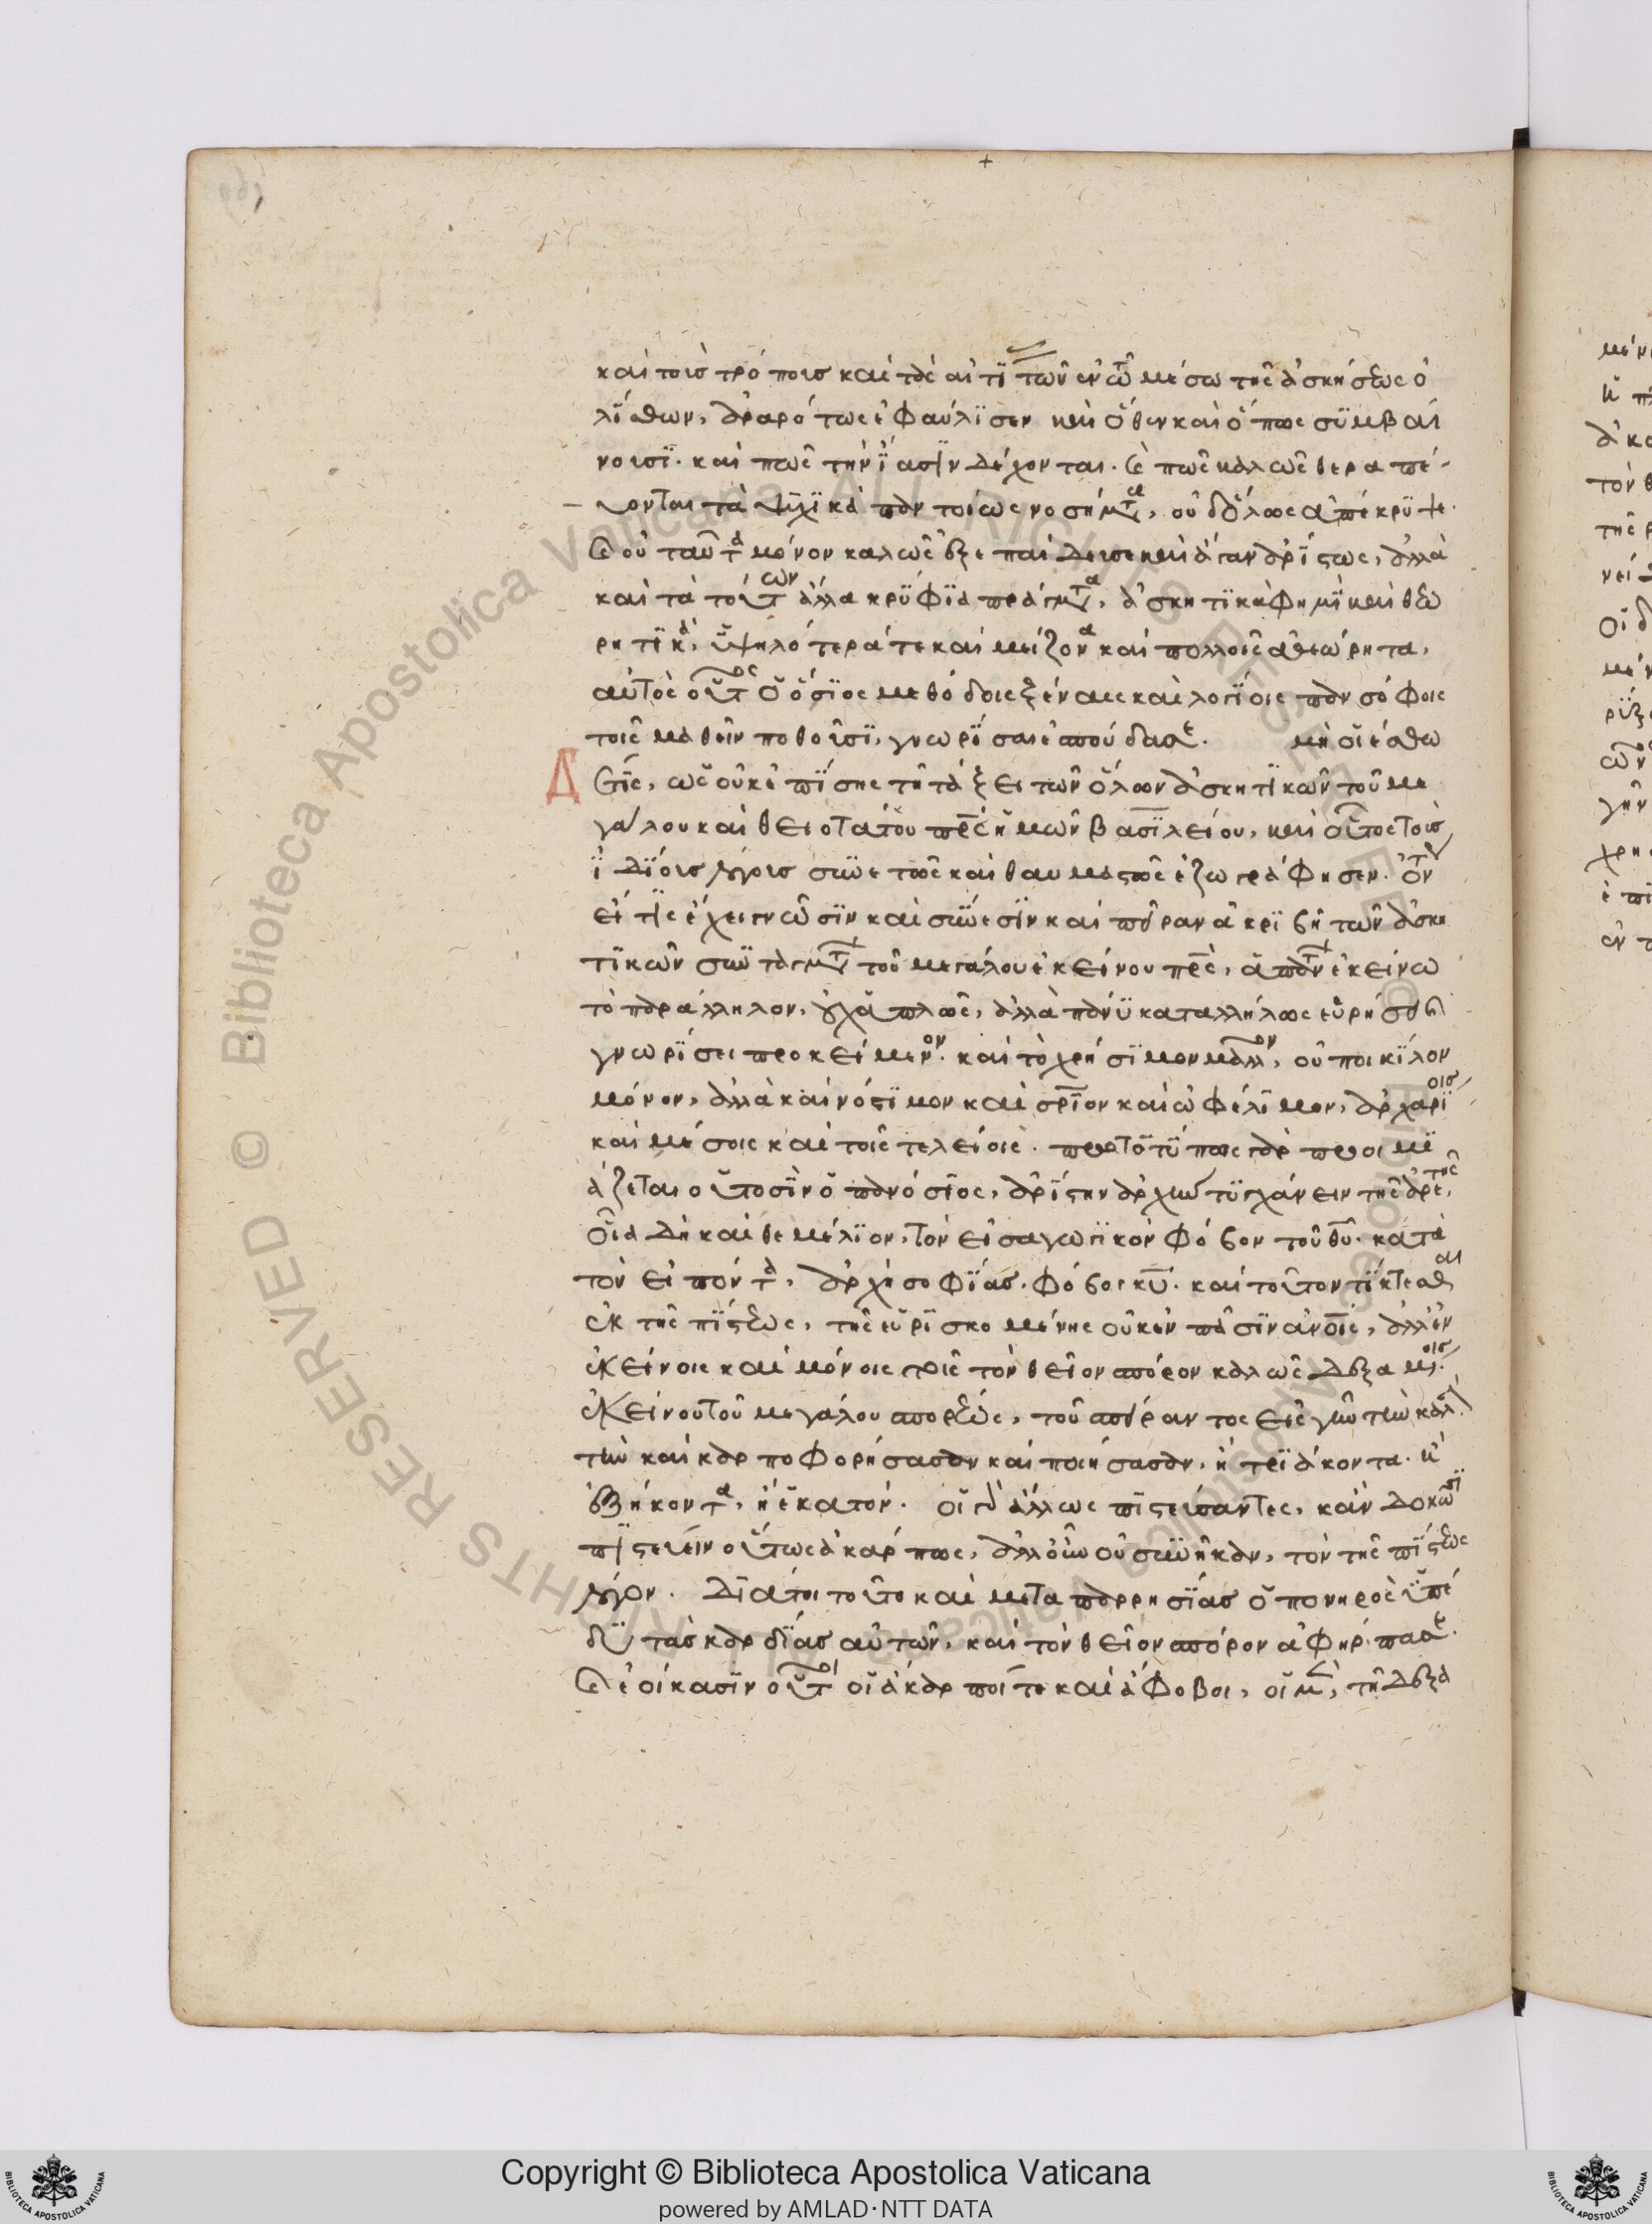 +
καὶ τοῖς τρόποις καὶ τὰς αἰτί των ἐν τῶ μέσω τῆς ἀσκήσεως ὀ
λίσθων, ἀραρότως ἐφαύλισεν καὶ ὅθεν καὶ ὅπως συμβαί
νουσι. καὶ πῶς τὴν ἴασιν δέχονται. καὶ πῶς καλῶς θεραπεύ
ονται τὰ ψυχικὰ νοσήματα, οὐδόλως ἀπέκρυψε.
καὶ οὐ ταῦτα μόνον καλῶς ἐξεπαίδευσε καὶ ἀρίστως, ἀλλὰ
καὶ τὰ τούτων ἄλλα κρύφια πράγματα, ἀσκητικὰ φημὶ καὶ θεω
ρητικά, ὑψηλότερά τε καὶ μείζονα καὶ πολλοῖς ἀθεώρητα,
αὐτὸς οὗτος ὁ ὅσιος μεθόδοις ξέναις καὶ λογίοις πανσόφοις
τοῖς μαθεῖν ποθοῦσι, γνωρίσαι ἐσπούδασε. μὴ οἰέσθω
Δ τίς, ὡς οὐκ ἐπίσης τῆ τάξει τῶν ὅλων ἀσκητικῶν τοῦ με
γάλου καὶ θειοτάτου πρς ἡμῶν βασιλείου, καὶ οὗτος τοῖς
ἰδίοις λόγοις συνετῶς καὶ θαυμαστῶς ἐζωγράφησεν. ὅταν
εἴ τις ἔχει γνῶσιν καὶ σύνεσιν καὶ πεῖραν ἀκριβῆ τῶν ἀσκη
τικῶν συνταγμάτων τοῦ μεγάλου ἐκείνου πρς, ἐκείνω
τὸ παράλληλον, οὐχ ἁπλῶς, ἀλλὰ πάνυ καταλλήλως εὑρήσει
γνωρίσει προκείμενον. καὶ τὸ χρήσιμον μᾶλλον, οὐ ποικίλον
μόνον, ἀλλὰ καὶ νόστιμον καὶ σριον καὶ ὠφέλιμον, ἀρχαρίοις
καὶ μέσοις καὶ τοῖς τελείοις. πρωτοτύπως γὰρ προοιμι
άζεται οὗτος ἡμῖν ὁ πανόσιος, ἀρίστην ἀρχὴν τυγχάνειν τῆς ἀρετῆς,
οἷα δὴ καὶ θεμέλιον, τὸν εἰσαγωγικὸν φόβον τοῦ θυ. κατὰ
τὸν εἰπόντα, ἀρχὴ σοφίας φόβος κυ. καὶ τοῦτον τίκτεσθαι
ἐκ τῆς πίστεως, τῆς εὑρισκομένης οὐκ ἐν πᾶσιν ἀνοις, ἀλλ' ἐν
ἐκείνοις καὶ μόνοις τοῖς τὸν θεῖον σπόρον καλῶς δεξαμένοις.
ἐκείνου τοῦ μεγάλου σπορέως, τοῦ σπείραντος εἰς γῆν τὴν καλήν.
τὴν καὶ καρποφορήσασαν καὶ ποιήσασαν, ἢ τριάκοντα. ἢ
ἑξήκοντα, ἢ ἑκατόν. οἱ δ' ἄλλως πιστεύσαντες, κἂν δοκῶσι
πιστεύειν οὕτως ἀκάρπως, ἀλλ' οὖν οὐ συνῆκαν, τὸν τῆς πίστεως
λόγον. διὰ τοι τοῦτο καὶ μετὰ παρρησίας ὁ πονηρὸς ὑπέ
δυ τὰς καρδίας αὐτῶν, καὶ τὸν θεῖον σπόρον ἀφήρπασε.
καὶ ἐοίκασιν οὗτοι οἱ ἄκαρποί τε καὶ ἄφοβοι, οἱ μὲν, τῆ δεξα
Copyright © Biblioteca Apostolica Vaticana
powered by AMLAD·NTT DATA